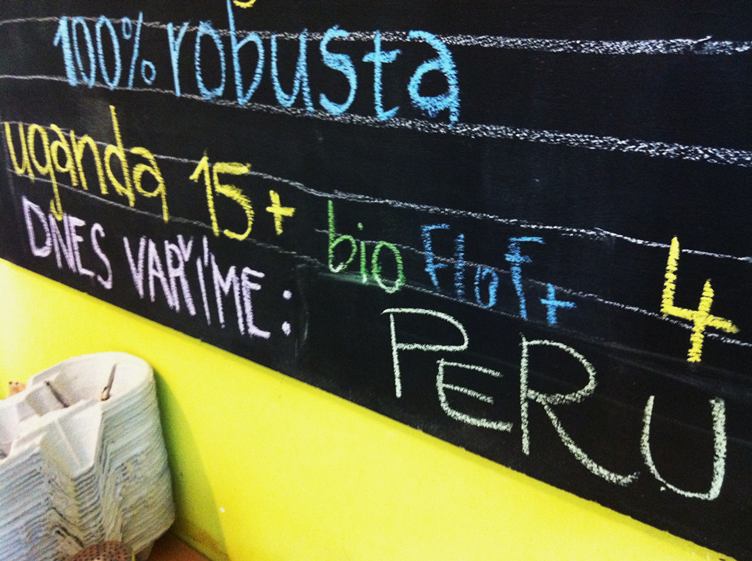 100% robusta
uganda 15+ bio FloFt 4
DNES VAŘÍME: PERU